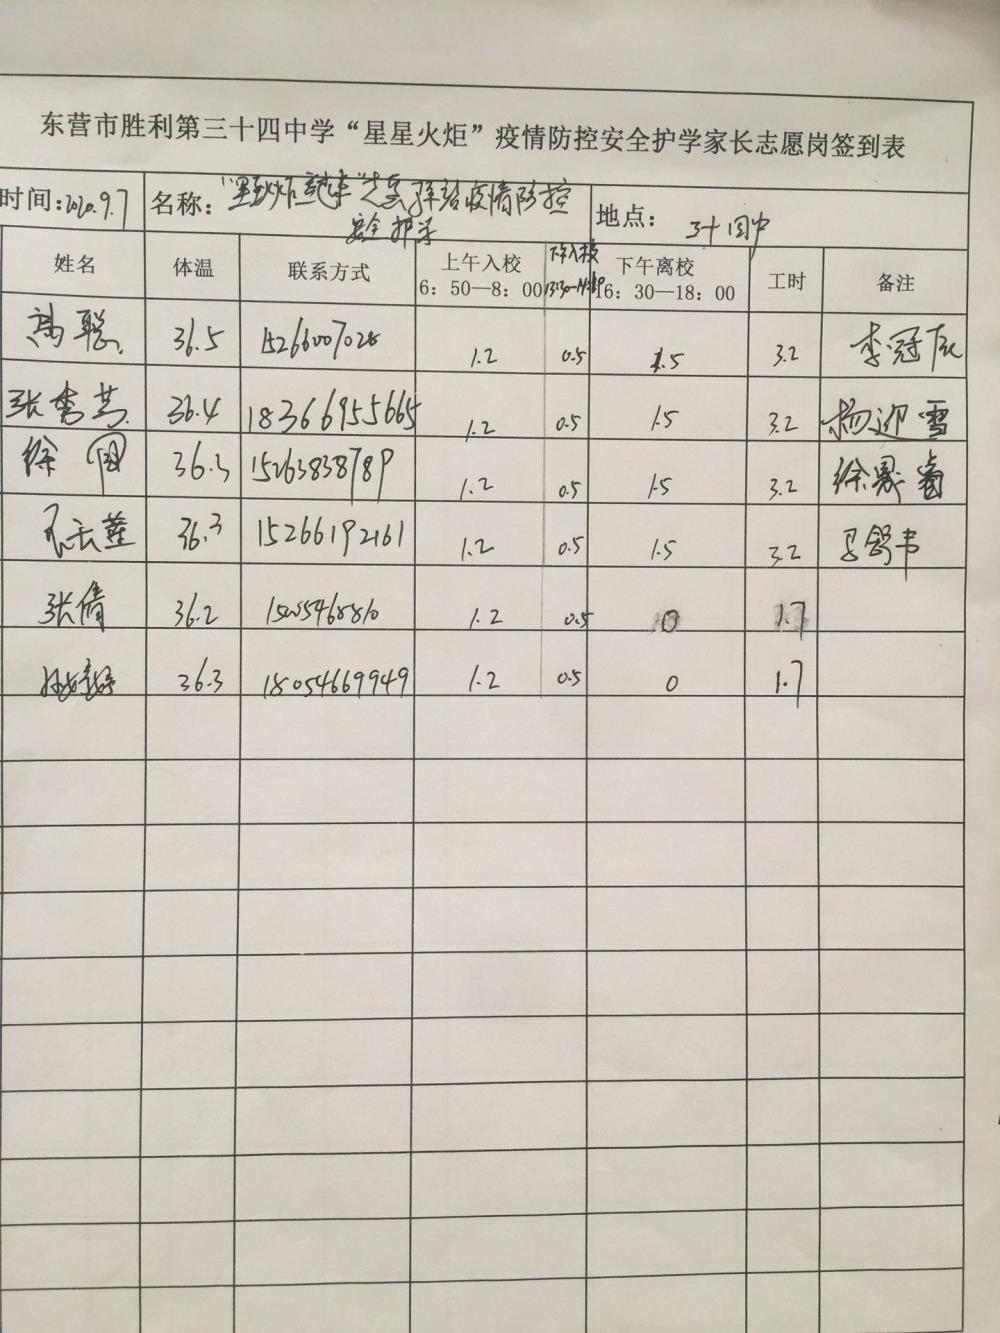 东营市胜利第三十四中学“星星火炬”疫情防控安全护学家长志愿岗签到表
时间:2020.9.7 名称: 疫情防控 地点: 三十四中
安全护学
姓名 体温 联系方式 上午入校 下午入校 下午离校 工时 备注
6：50—8：00 13:30-14: 16：30—18：00
高聪 36.5 15266007028 1.2 0.5 1.5 3.2 李冠辰
张秀芳 36.4 18366955665 1.2 0.5 1.5 3.2 杨迎雪
徐 36.3 15263838789 1.2 0.5 1.5 3.2 徐睿
36.3 15266192161 1.2 0.5 1.5 3.2 马舒韦
张倩 36.2 1.2 0.5 0 1.7
36.3 18054669949 1.2 0.5 0 1.7